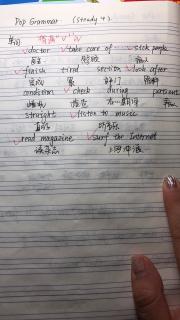 Pop Grammar (Steady 4.)
✓doctor ✓take care of ✓sick people
医生 照顾 病人
✓finish tired section ✓look after
完成 累 部门 照顾
condition ✓check during patient
检查 病人
straight ✓listen to music
直的 听音乐
✓read magazine ✓surf the Internet
读杂志 上网冲浪